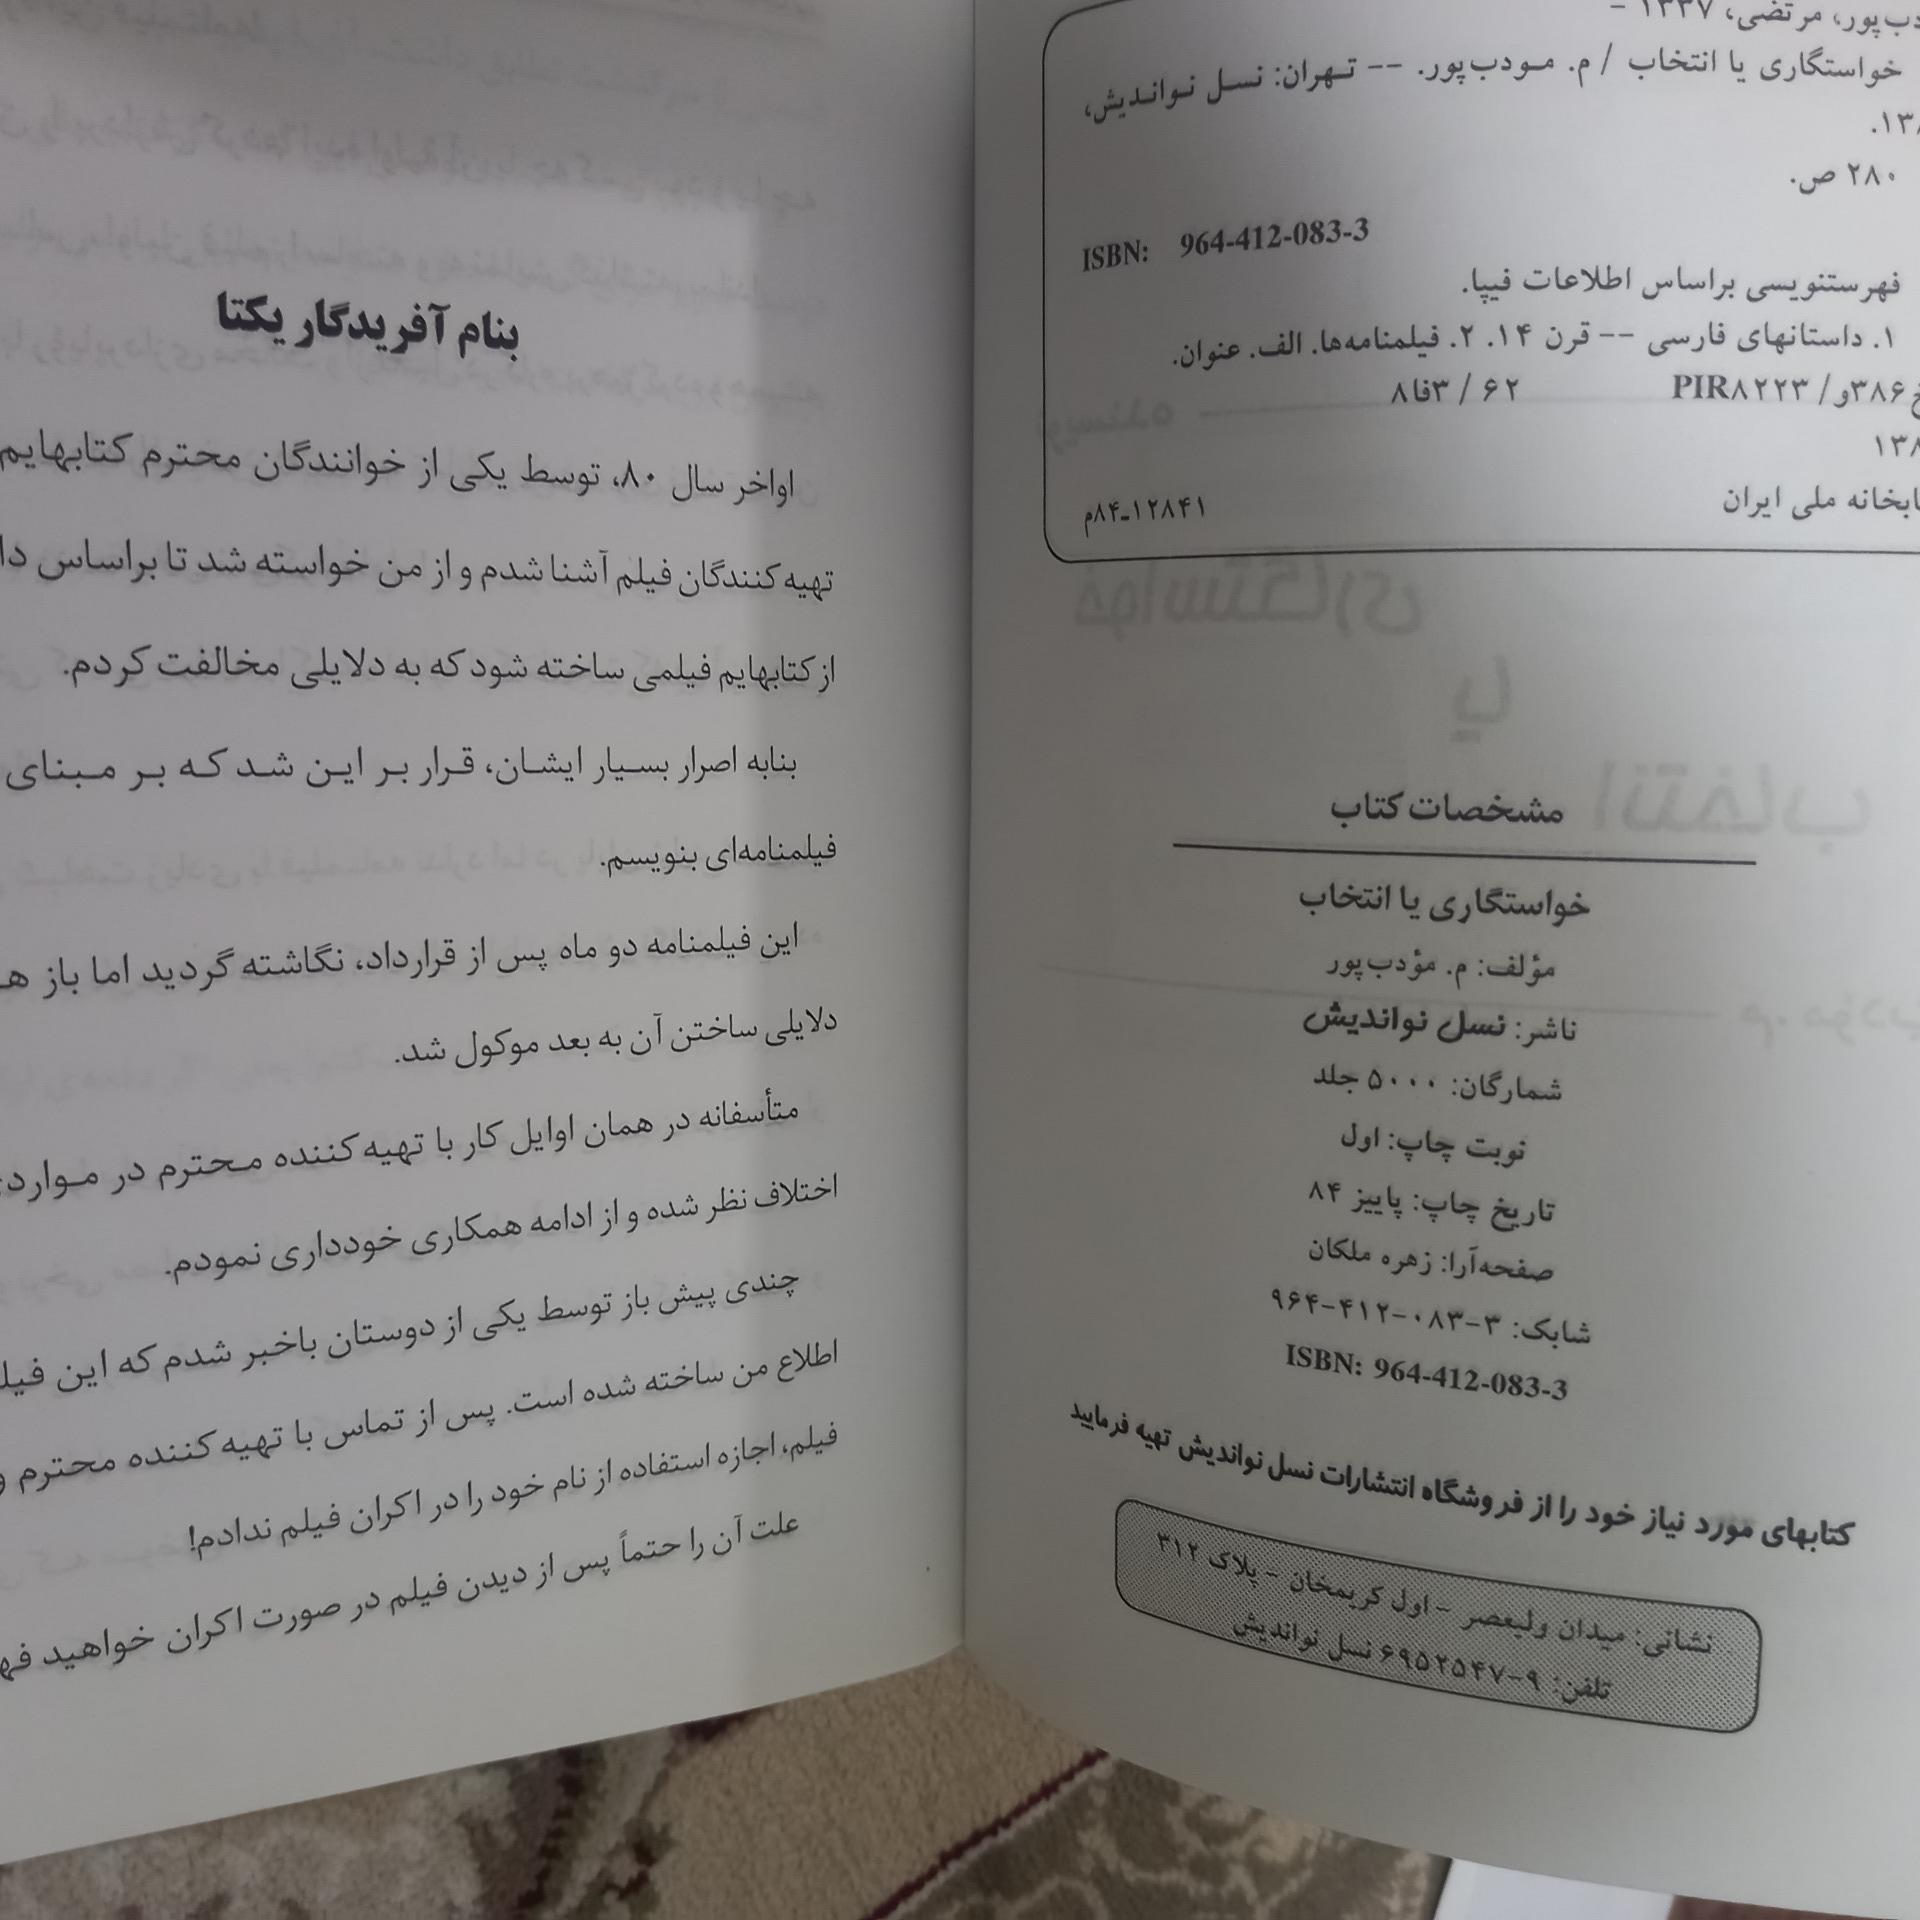 خواستگاری یا انتخاب / م. مودب‌پور. -- تهران: نسل نواندیش،
۲۸۰ ص.
ISBN: 964-412-083-3
فهرستنویسی براساس اطلاعات فیپا.
۱. داستانهای فارسی -- قرن ۱۴. ۲. فیلمنامه‌ها. الف. عنوان.
۸فا۳ / ۶۲ PIR۸۲۲۳ /
ملی ایران
۱۲۸۴۱-۸۴م
مشخصات کتاب
خواستگاری یا انتخاب
مؤلف: م. مؤدب‌پور
ناشر: نسل نواندیش
شمارگان: ۵۰۰۰ جلد
نوبت چاپ: اول
تاریخ چاپ: پاییز ۸۴
صفحه‌آرا: زهره ملکان
شابک: ۳-۰۸۳-۴۱۲-۹۶۴
ISBN: 964-412-083-3
کتابهای مورد نیاز خود را از فروشگاه انتشارات نسل نواندیش تهیه فرمایید
نشانی: میدان ولیعصر - اول کریمخان - پلاک ۳۱۲
تلفن: ۹-۶۹۵۲۵۴۷ نسل نواندیش
بنام آفریدگار یکتا
اواخر سال ۸۰، توسط یکی از خوانندگان محترم کتابهایم
تهیه کنندگان فیلم آشنا شدم و از من خواسته شد تا براساس
از کتابهایم فیلمی ساخته شود که به دلایلی مخالفت کردم.
بنابه اصرار بسیار ایشان، قرار بر این شد که بر مبنای
فیلمنامه‌ای بنویسم.
این فیلمنامه دو ماه پس از قرارداد، نگاشته گردید اما باز
دلایلی ساختن آن به بعد موکول شد.
متأسفانه در همان اوایل کار با تهیه کننده محترم در
اختلاف نظر شده و از ادامه همکاری خودداری نمودم.
چندی پیش باز توسط یکی از دوستان باخبر شدم که این
اطلاع من ساخته شده است. پس از تماس با تهیه کننده محترم و
فیلم، اجازه استفاده از نام خود را در اکران فیلم ندادم!
علت آن را حتماً پس از دیدن فیلم در صورت اکران خواهید